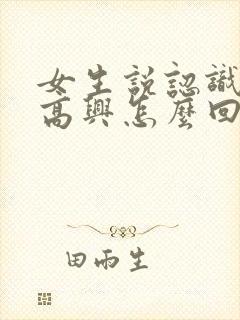 女生説認識
高興怎麼回
田雨生